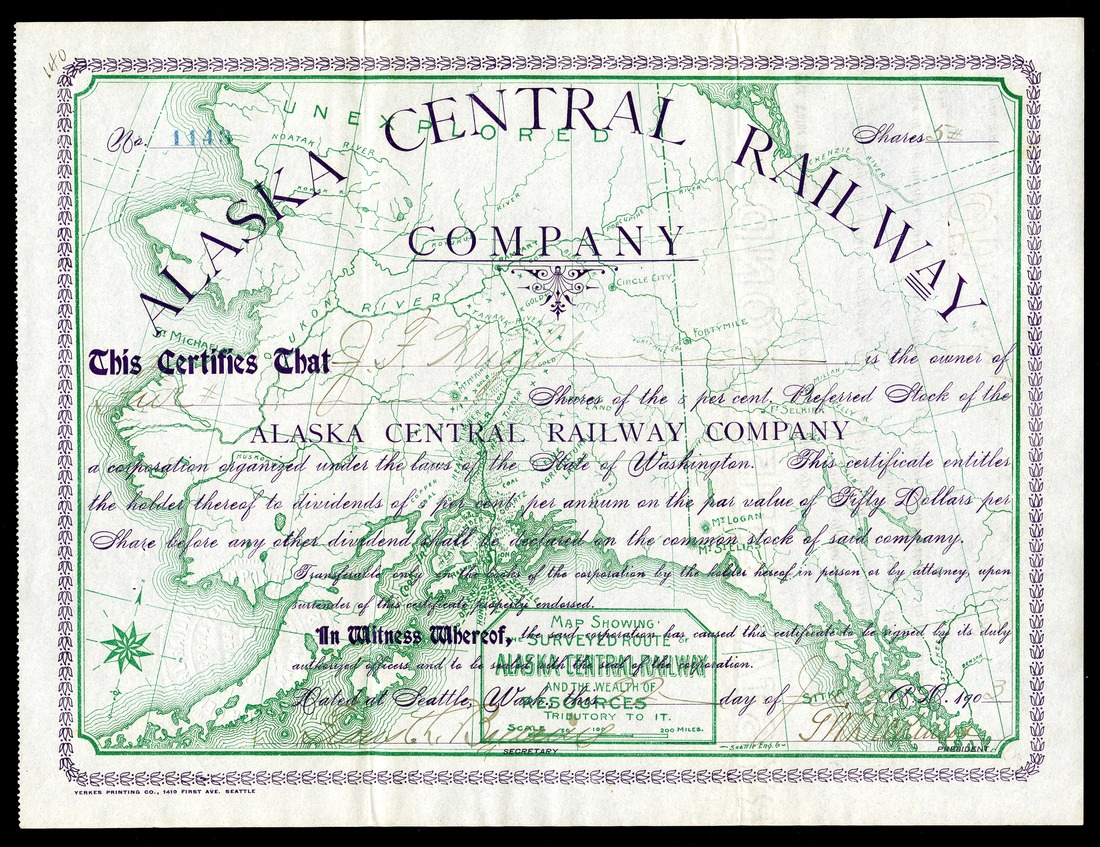 140
UNEXPLORED
No. 1143
Shares 5
ALASKA CENTRAL RAILWAY
COMPANY
NOATAK RIVER
MACKENZIE RIVER
RIVER
PORCUPINE RIVER
CIRCLE CITY
GOLD
YUKON RIVER
TANANA RIVER
ST MICHAEL
FORTYMILE
This Certifies That J. F.
is the owner of
GOLD
Shares of the 5 per cent. Preferred Stock of the
LAND
FT SELKIRK
PELLY R
ALASKA CENTRAL RAILWAY COMPANY
a corporation organized under the laws of the State of Washington. This certificate entitles
COPPER
COAL
the holder thereof to dividends of 5 per cent. per annum on the par value of Fifty Dollars per
MT LOGAN
Share before any other dividend shall be declared on the common stock of said company.
MT ST ELIAS
Transferable only on the books of the corporation by the holder hereof in person or by attorney, upon
surrender of this certificate properly endorsed.
MAP SHOWING
In Witness Whereof, the said corporation has caused this certificate to be signed by its duly
THE SURVEYED ROUTE
authorized officers and to be sealed with the seal of the corporation.
ALASKA CENTRAL RAILWAY
AND THE WEALTH OF
Dated at Seattle, Wash., this day of A.D. 1903
SITKA
RESOURCES
TRIBUTARY TO IT.
SCALE 50 100 200 MILES.
SECRETARY
Seattle Eng. Co
PRESIDENT
YERKES PRINTING CO., 1410 FIRST AVE. SEATTLE